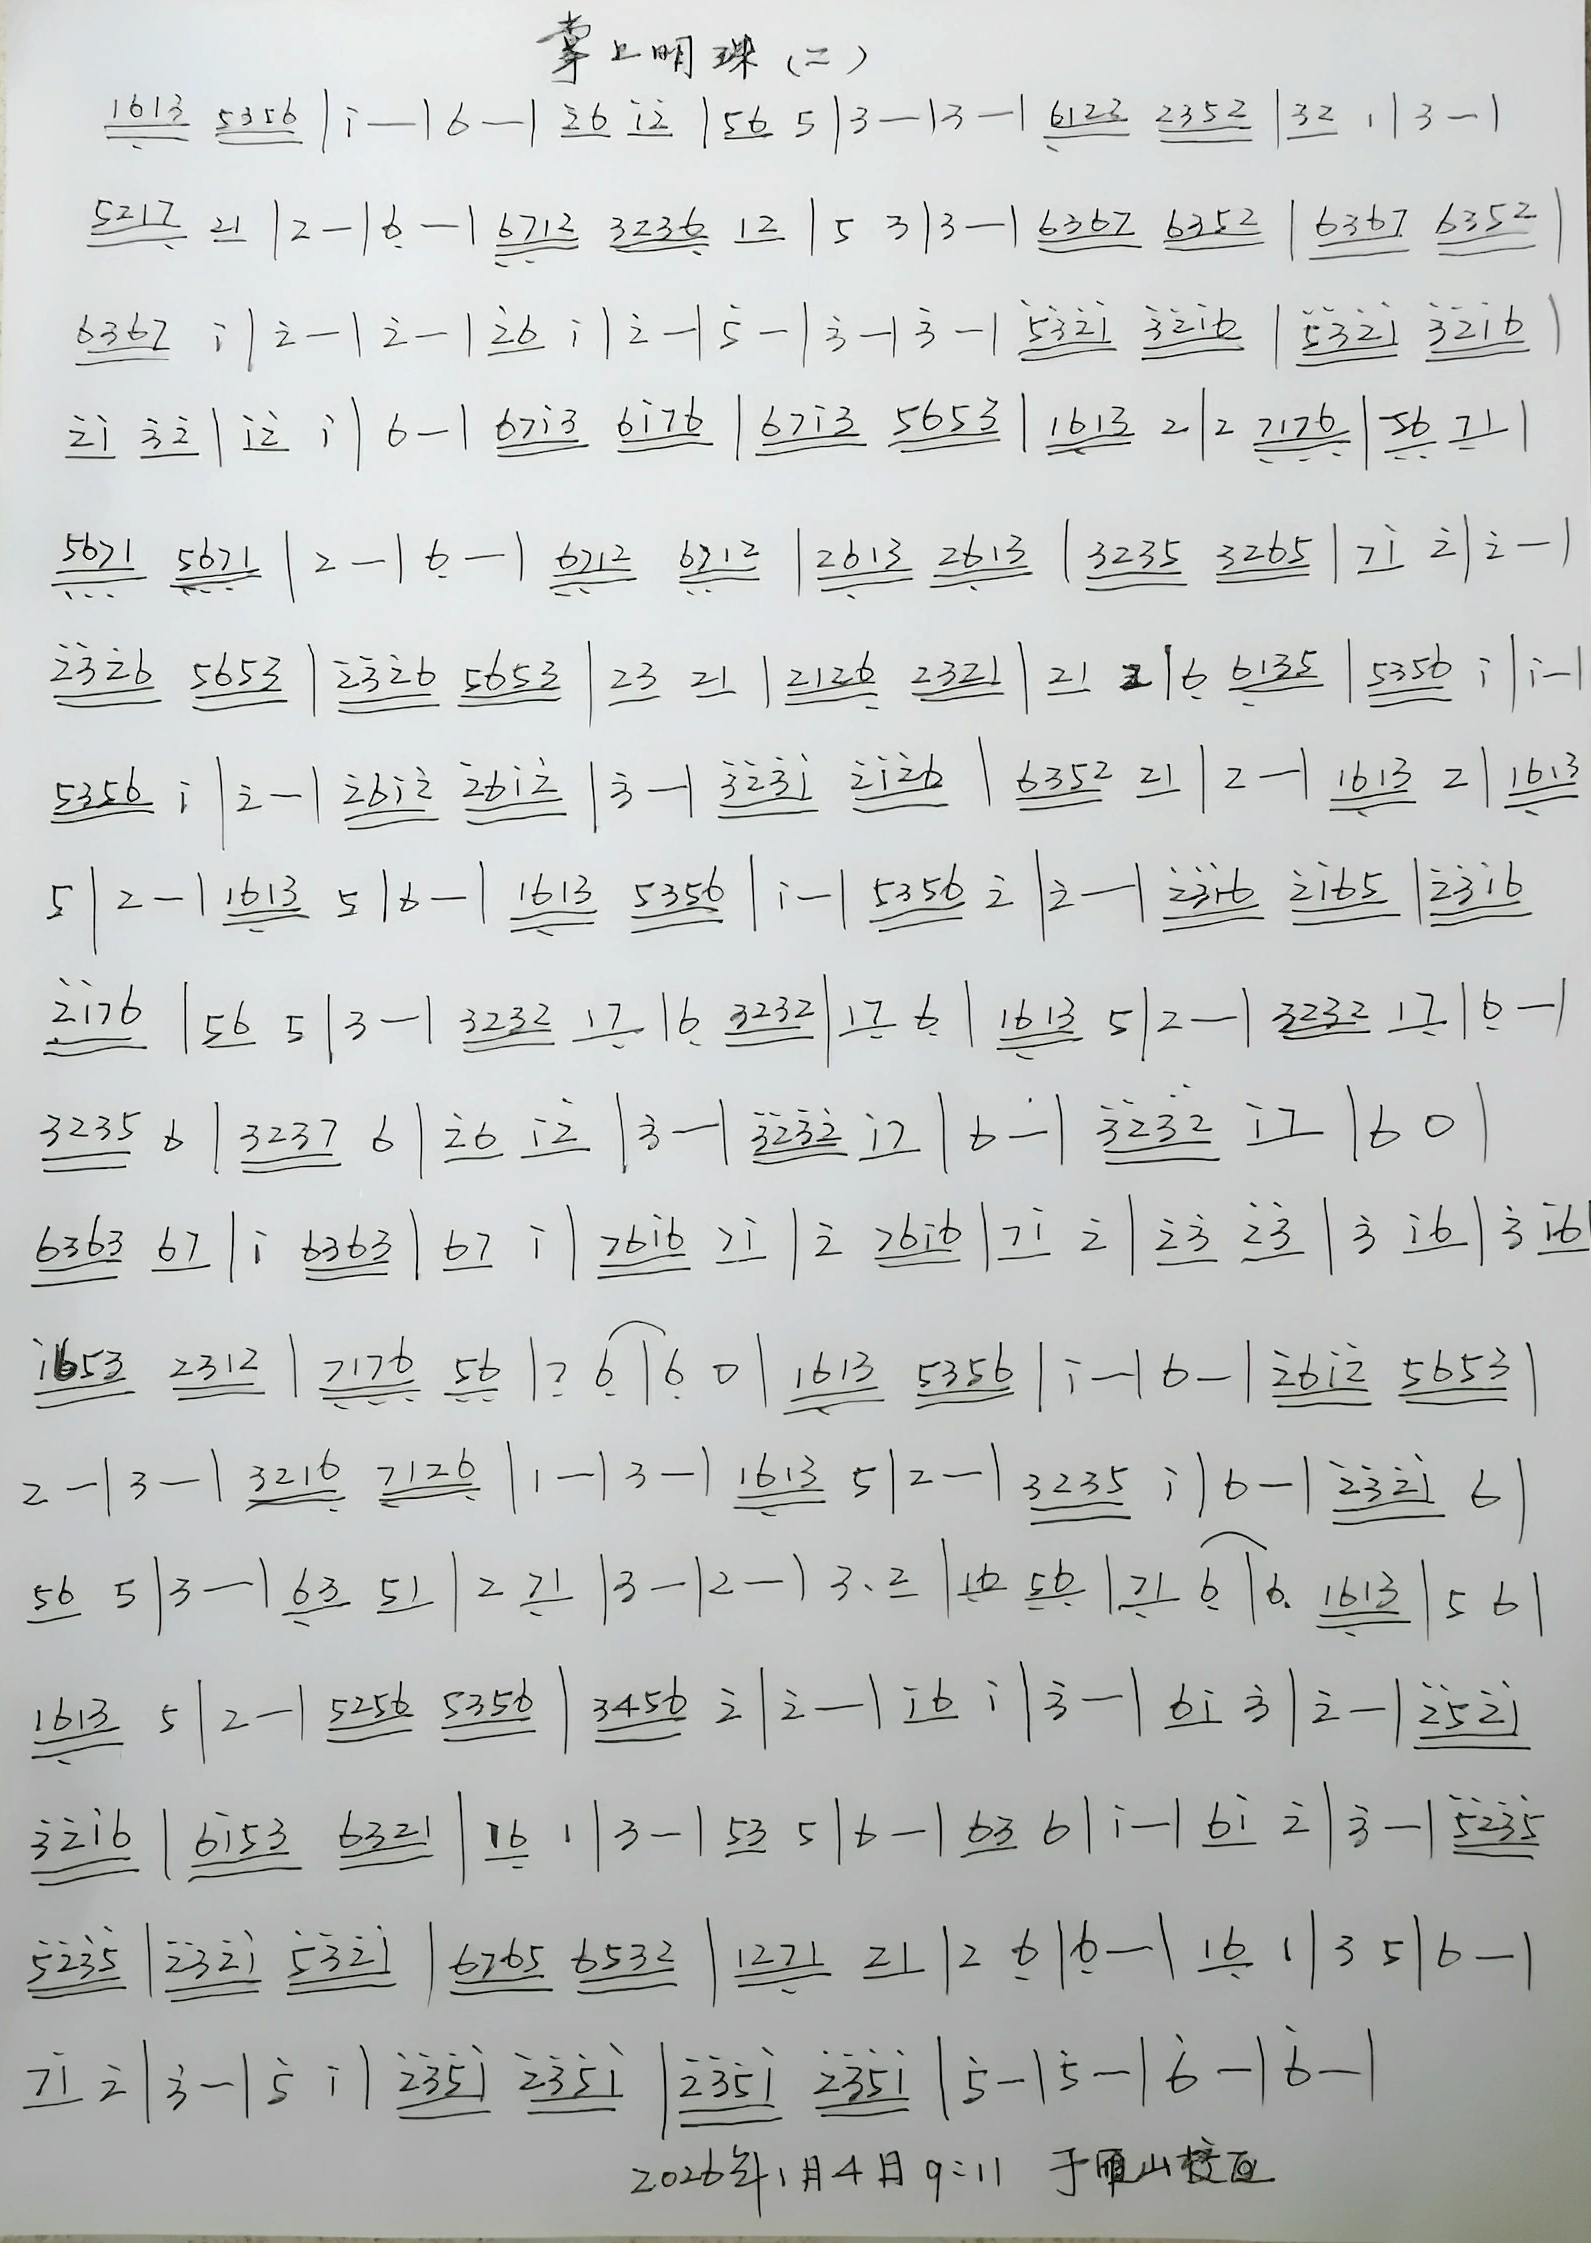 掌上明珠（二）
1613 5356 | i — | 6 — | 2̇6 i2̇ | 56 5 | 3 — | 3 — | 6123 2352 | 32 1 | 3 — |
5217 21 | 2 — | 6 — | 6712 3236 12 | 5 3 | 3 — | 6367 6352 | 6367 6352 |
6367 i | 2̇ — | 2̇ — | 2̇6 i | 2̇ — | 5̇ — | 3̇ — | 3̇ — | 5̇3̇2̇i 3̇2̇i6 | 5̇3̇2̇i 3̇2̇i6 |
2̇i 3̇2̇ | i2̇ i | 6 — | 67i3 6i76 | 67i3 5653 | 1613 2 | 2 7176 | 56 71 |
5671 5671 | 2 — | 6 — | 6712 6712 | 2613 2613 | 3235 3265 | 7i 2̇ | 2̇ — |
2̇3̇2̇6 5653 | 2̇3̇2̇6 5653 | 23 21 | 2126 2321 | 21 2 | 6 6135 | 5356 i | i — |
5356 i | 2̇ — | 2̇6i2̇ 2̇6i2̇ | 3̇ — | 3̇2̇3̇i 2̇i2̇6 | 6352 21 | 2 — | 1613 2 | 1613
5 | 2 — | 1613 5 | 6 — | 1613 5356 | i — | 5356 2̇ | 2̇ — | 2̇3̇i6 2̇i65 | 2̇3̇i6
2̇i76 | 56 5 | 3 — | 3232 17 | 6 3232 | 17 6 | 1613 5 | 2 — | 3232 17 | 6 — |
3235 6 | 3237 6 | 2̇6 i2̇ | 3̇ — | 3̇2̇3̇2̇ i7 | 6 — | 3̇2̇3̇2̇ i7 | 6 0 |
6363 67 | i 6363 | 67 i | 76i6 7i | 2̇ 76i6 | 7i 2̇ | 2̇3̇ 2̇3̇ | 3̇ i6 | 3̇ i6
i653 2312 | 7176 56 | 7 6 | 6 0 | 1613 5356 | i — | 6 — | 2̇6i2̇ 5653 |
2 — | 3 — | 3216 7126 | 1 — | 3 — | 1613 5 | 2 — | 3235 i | 6 — | 2̇3̇2̇i 6 |
56 5 | 3 — | 63 51 | 2 71 | 3 — | 2 — | 3. 2 | 16 56 | 71 6 | 6. 1613 | 5 6 |
1613 5 | 2 — | 5256 5356 | 3456 2̇ | 2̇ — | i6 i | 3̇ — | 6i 3̇ | 2̇ — | 2̇5̇2̇i
3̇2̇i6 | 6i53 6321 | 16 1 | 3 — | 53 5 | 6 — | 63 6 | i — | 6i 2̇ | 3̇ — | 5̇2̇3̇5̇
5̇2̇3̇5̇ | 2̇3̇2̇i 5̇3̇2̇i | 6765 6532 | 1271 21 | 2 6 | 6 — | 16 1 | 3 5 | 6 — |
7i 2̇ | 3̇ — | 5̇ i | 2̇3̇5̇i 2̇3̇5̇i | 2̇3̇5̇i 2̇3̇5̇i | 5̇ — | 5̇ — | 6̇ — | 6̇ — |
2026年1月4日9:11 于雁山校区